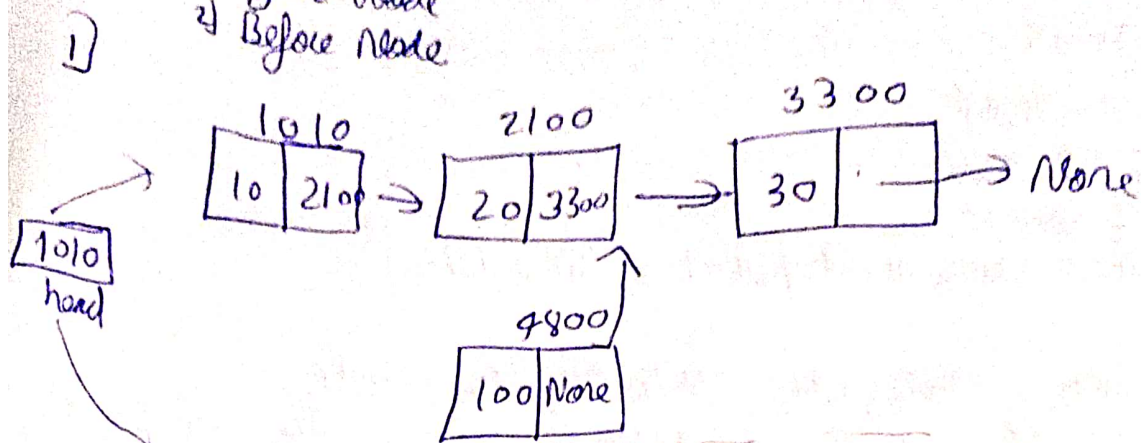 1]
2] Before Node
1010 2100 3300
10 210 20 3300 30 None
1010
head
4800
100 None